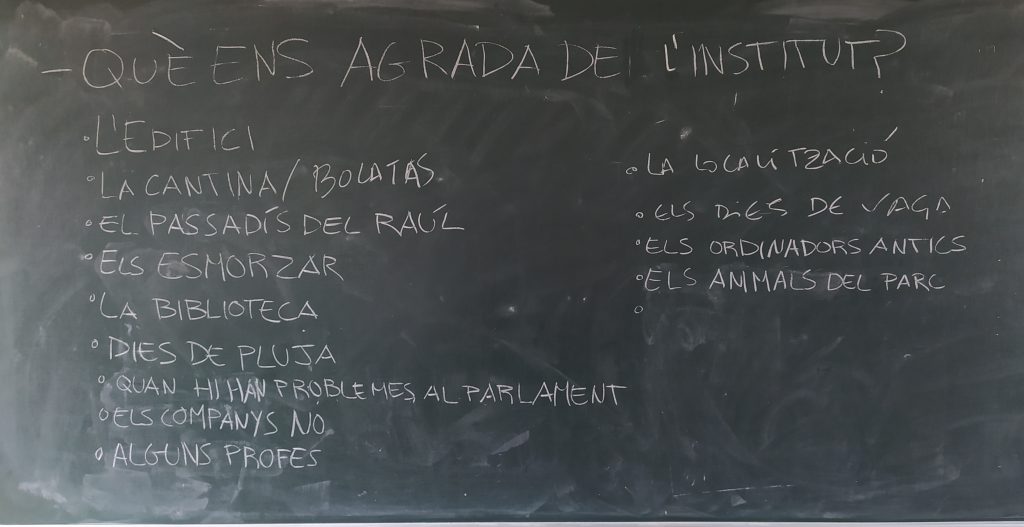 - QUÈ ENS AGRADA DE L'INSTITUT?
◦ L'EDIFICI
◦ LA CANTINA / BOCATAS.
◦ EL PASSADÍS DEL RAÚL
◦ ELS ESMORZAR
◦ LA BIBLIOTECA
◦ DIES DE PLUJA
◦ QUAN HI HAN PROBLEMES AL PARLAMENT
◦ ELS COMPANYS NO
◦ ALGUNS PROFES
◦ LA LOCALITZACIÓ
◦ ELS DIES DE VAGA
◦ ELS ORDINADORS ANTICS
◦ ELS ANIMALS DEL PARC
◦